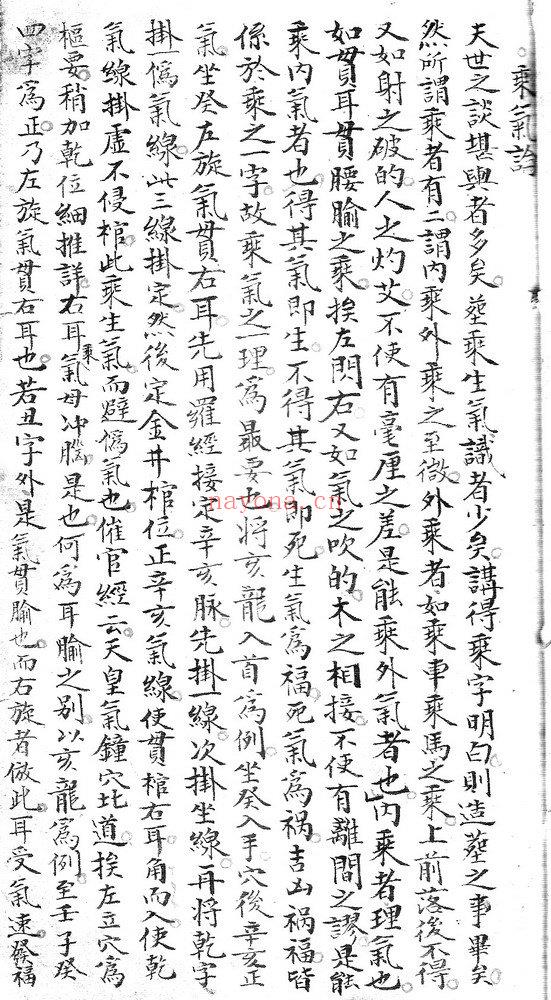 乘氣論
夫世之談堪輿者多矣塟乘生氣識者少矣講得乘字明白則造塟之事畢矣
然所謂乘者有二謂內乘外乘之至微外乘者如乘車乘馬之乘上前落後不得
又如射之破的人之灼艾不使有毫厘之差是能乘外氣者也內乘者理氣也
如貫耳貫腰腧之乘挨左閃右又如氣之吹的木之相接不使有離間之謬是能
乘內氣者也得其氣即生不得其氣即死生氣爲福死氣爲禍吉凶禍福皆
係於乘之一字故乘氣之一理爲最要也將亥龍入首爲例坐癸入手穴後辛亥正
氣坐癸左旋氣貫右耳先用羅經接定辛亥脉先掛一線次掛坐線再將乾字
掛一僞氣線此三線掛定然後定金井棺位正辛亥氣線使貫棺右耳角而入使乾
氣線掛虛不侵棺此乘生氣而避僞氣也催官經云天皇氣鐘穴北道挨左立穴爲
樞要稍加乾位細推詳右耳乘氣母冲腦是也何爲耳腧之别以亥龍爲例至壬子癸
四字爲正乃左旋氣貫右耳也若丑字外是氣貫腧也而右旋者倣此耳受氣速發福
nayona.cn